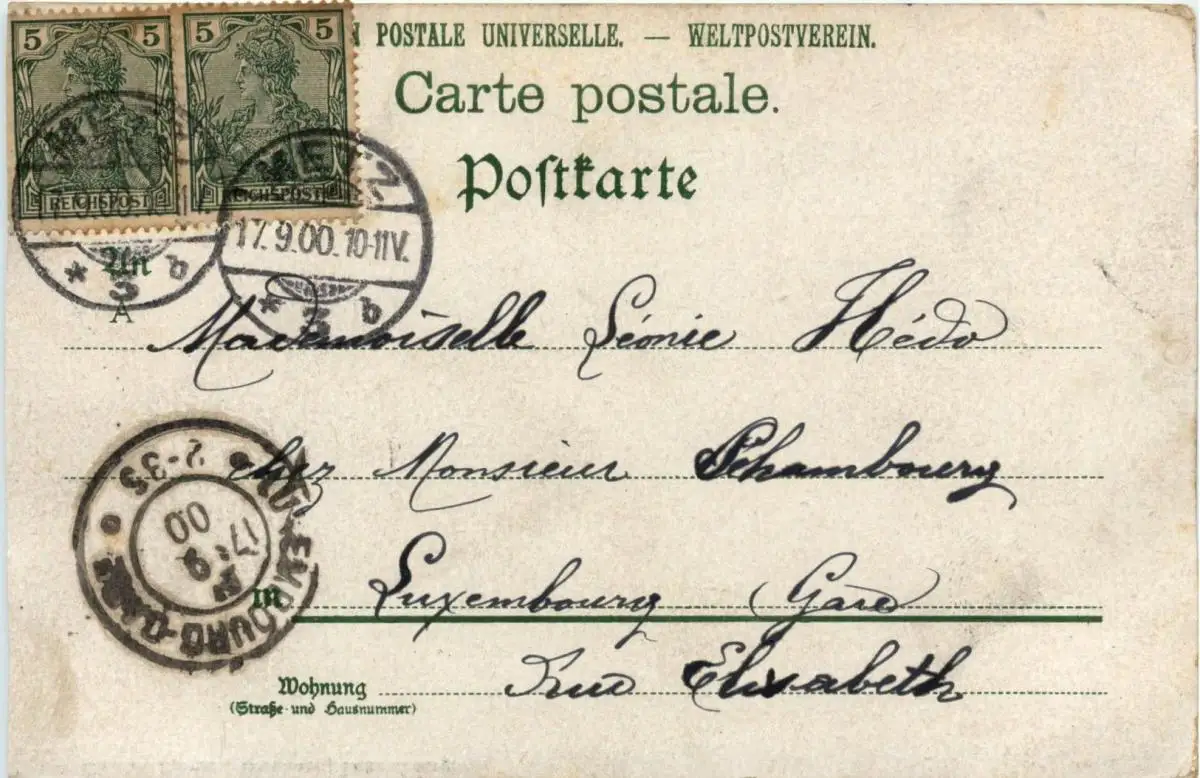 5 5 5 5
N POSTALE UNIVERSELLE. — WELTPOSTVEREIN.
Carte postale.
Postkarte
REICHSPOST REICHSPOST
METZ
17.9.00.10-11V.
* 3 b
* 3 b
An
A
Mademoiselle Léonie Hédo
chez Monsieur Schambourg
2-33
17 9 00
LUXEMBOURG-GARE
in Luxembourg Gare
Wohnung Rue Elisabeth
(Straße und Hausnummer)